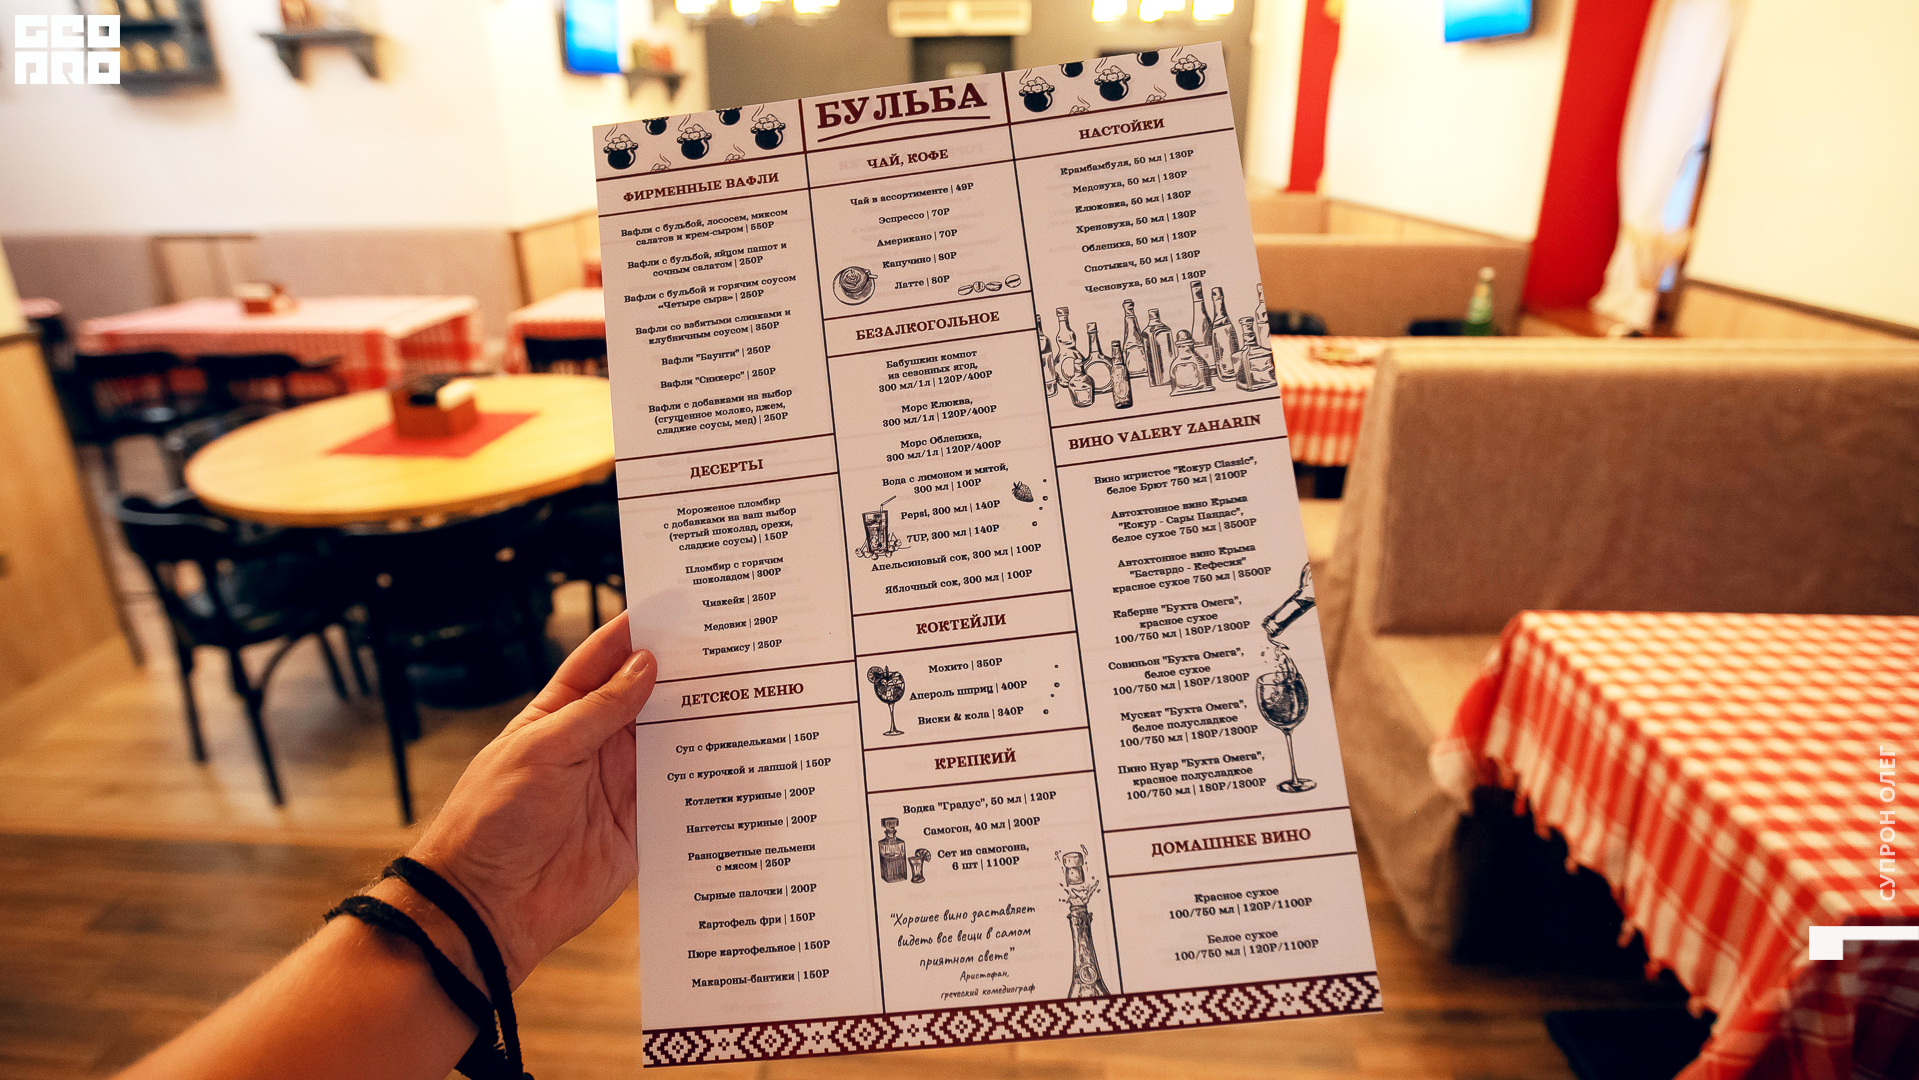 GEO
PRO
БУЛЬБА
ФИРМЕННЫЕ ВАФЛИ
Вафли с бульбой, лососем, миксом
салатов и крем-сыром | 550Р
Вафли с бульбой, яйцом пашот и
сочным салатом | 250Р
Вафли с бульбой и горячим соусом
«Четыре сыра» | 250Р
Вафли со взбитыми сливками и
клубничным соусом | 350Р
Вафли "Баунти" | 250Р
Вафли "Сникерс" | 250Р
Вафли с добавками на выбор
(сгущенное молоко, джем,
сладкие соусы, мед) | 250Р
ДЕСЕРТЫ
Мороженое пломбир
с добавками на ваш выбор
(тертый шоколад, орехи,
сладкие соусы) | 150Р
Пломбир с горячим
шоколадом | 300Р
Чизкейк | 250Р
Медовик | 290Р
Тирамису | 250Р
ДЕТСКОЕ МЕНЮ
Суп с фрикадельками | 150Р
Суп с курочкой и лапшой | 150Р
Котлетки куриные | 200Р
Наггетсы куриные | 200Р
Разноцветные пельмени
с мясом | 250Р
Сырные палочки | 200Р
Картофель фри | 150Р
Пюре картофельное | 150Р
Макароны-бантики | 150Р
ЧАЙ, КОФЕ
Чай в ассортименте | 49Р
Эспрессо | 70Р
Американо | 70Р
Капучино | 80Р
Латте | 80Р
БЕЗАЛКОГОЛЬНОЕ
Бабушкин компот
из сезонных ягод,
300 мл/1л | 120Р/400Р
Морс Клюква,
300 мл/1л | 120Р/400Р
Морс Облепиха,
300 мл/1л | 120Р/400Р
Вода с лимоном и мятой,
300 мл | 100Р
Pepsi, 300 мл | 140Р
7UP, 300 мл | 140Р
Апельсиновый сок, 300 мл | 100Р
Яблочный сок, 300 мл | 100Р
КОКТЕЙЛИ
Мохито | 350Р
Апероль шприц | 400Р
Виски & кола | 340Р
КРЕПКИЙ
Водка "Градус", 50 мл | 120Р
Самогон, 40 мл | 200Р
Сет из самогона,
6 шт | 1100Р
"Хорошее вино заставляет
видеть все вещи в самом
приятном свете"
Аристофан,
греческий комедиограф
НАСТОЙКИ
Крамбамбуля, 50 мл | 130Р
Медовуха, 50 мл | 130Р
Клюковка, 50 мл | 130Р
Хреновуха, 50 мл | 130Р
Облепиха, 50 мл | 130Р
Спотыкач, 50 мл | 130Р
Чесновуха, 50 мл | 130Р
ВИНО VALERY ZAHARIN
Вино игристое "Кокур Classic",
белое Брют 750 мл | 2100Р
Автохтонное вино Крыма
"Кокур - Сары Пандас",
белое сухое 750 мл | 3500Р
Автохтонное вино Крыма
"Бастардо - Кефесия"
красное сухое 750 мл | 3500Р
Каберне "Бухта Омега",
красное сухое
100/750 мл | 180Р/1300Р
Совиньон "Бухта Омега",
белое сухое
100/750 мл | 180Р/1300Р
Мускат "Бухта Омега",
белое полусладкое
100/750 мл | 180Р/1300Р
Пино Нуар "Бухта Омега",
красное полусладкое
100/750 мл | 180Р/1300Р
ДОМАШНЕЕ ВИНО
Красное сухое
100/750 мл | 120Р/1100Р
Белое сухое
100/750 мл | 120Р/1100Р
СУПРОН ОЛЕГ